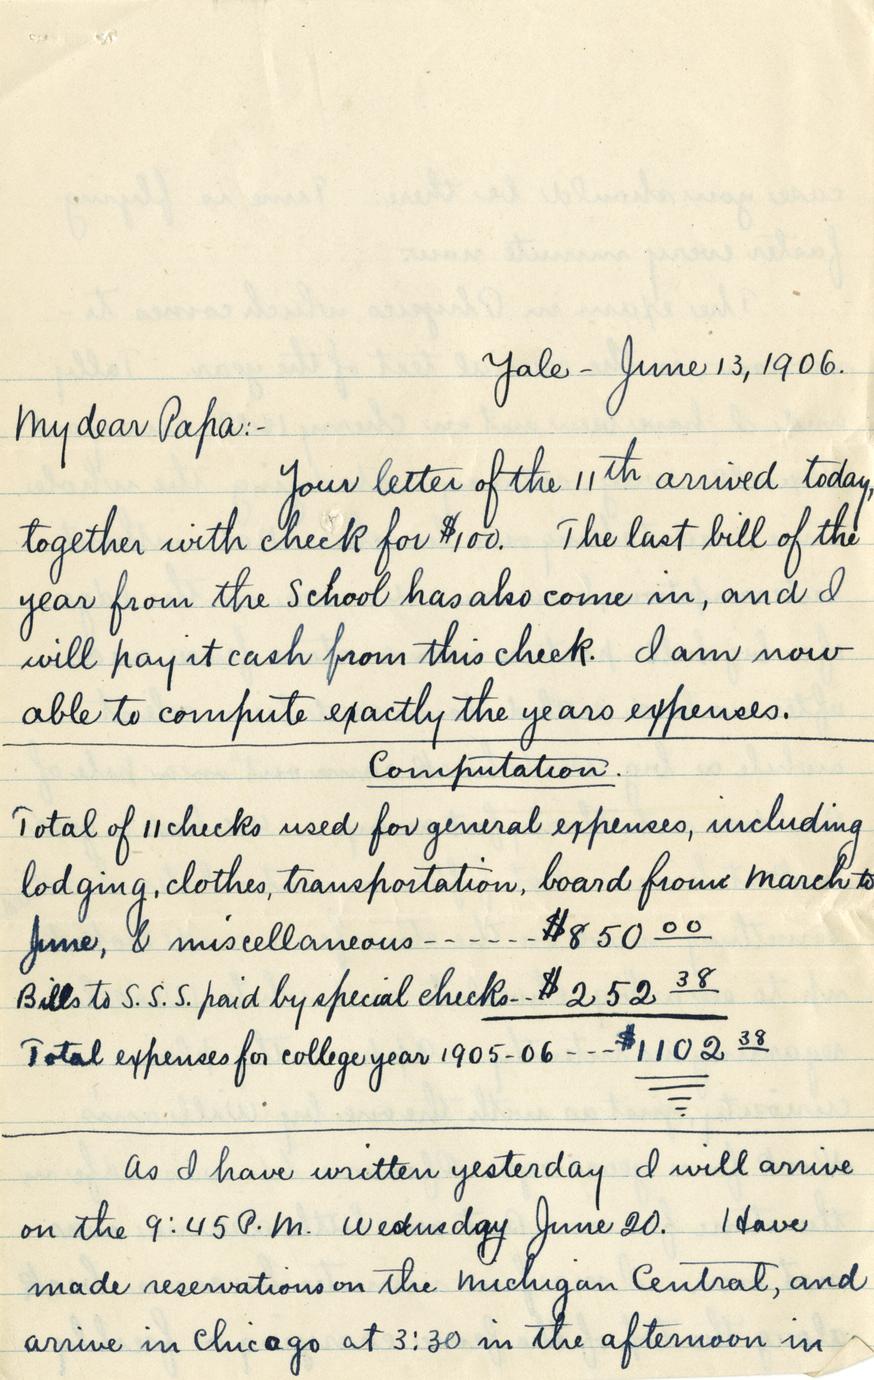 Yale - June 13, 1906.
My dear Papa:-
Your letter of the 11th arrived today,
together with check for $100. The last bill of the
year from the School has also come in, and I
will pay it cash from this check. I am now
able to compute exactly the years expenses.
Computation.
Total of 11 checks used for general expenses, including
lodging, clothes, transportation, board from March to
June, & miscellaneous ------ $850 00
Bills to S.S.S. paid by special checks -- $252 38
Total expenses for college year 1905-06 --- $1102 38
As I have written yesterday I will arrive
on the 9:45 P.M. Wednsday June 20. I Have
made reservations on the Michigan Central, and
arrive in Chicago at 3:30 in the afternoon in